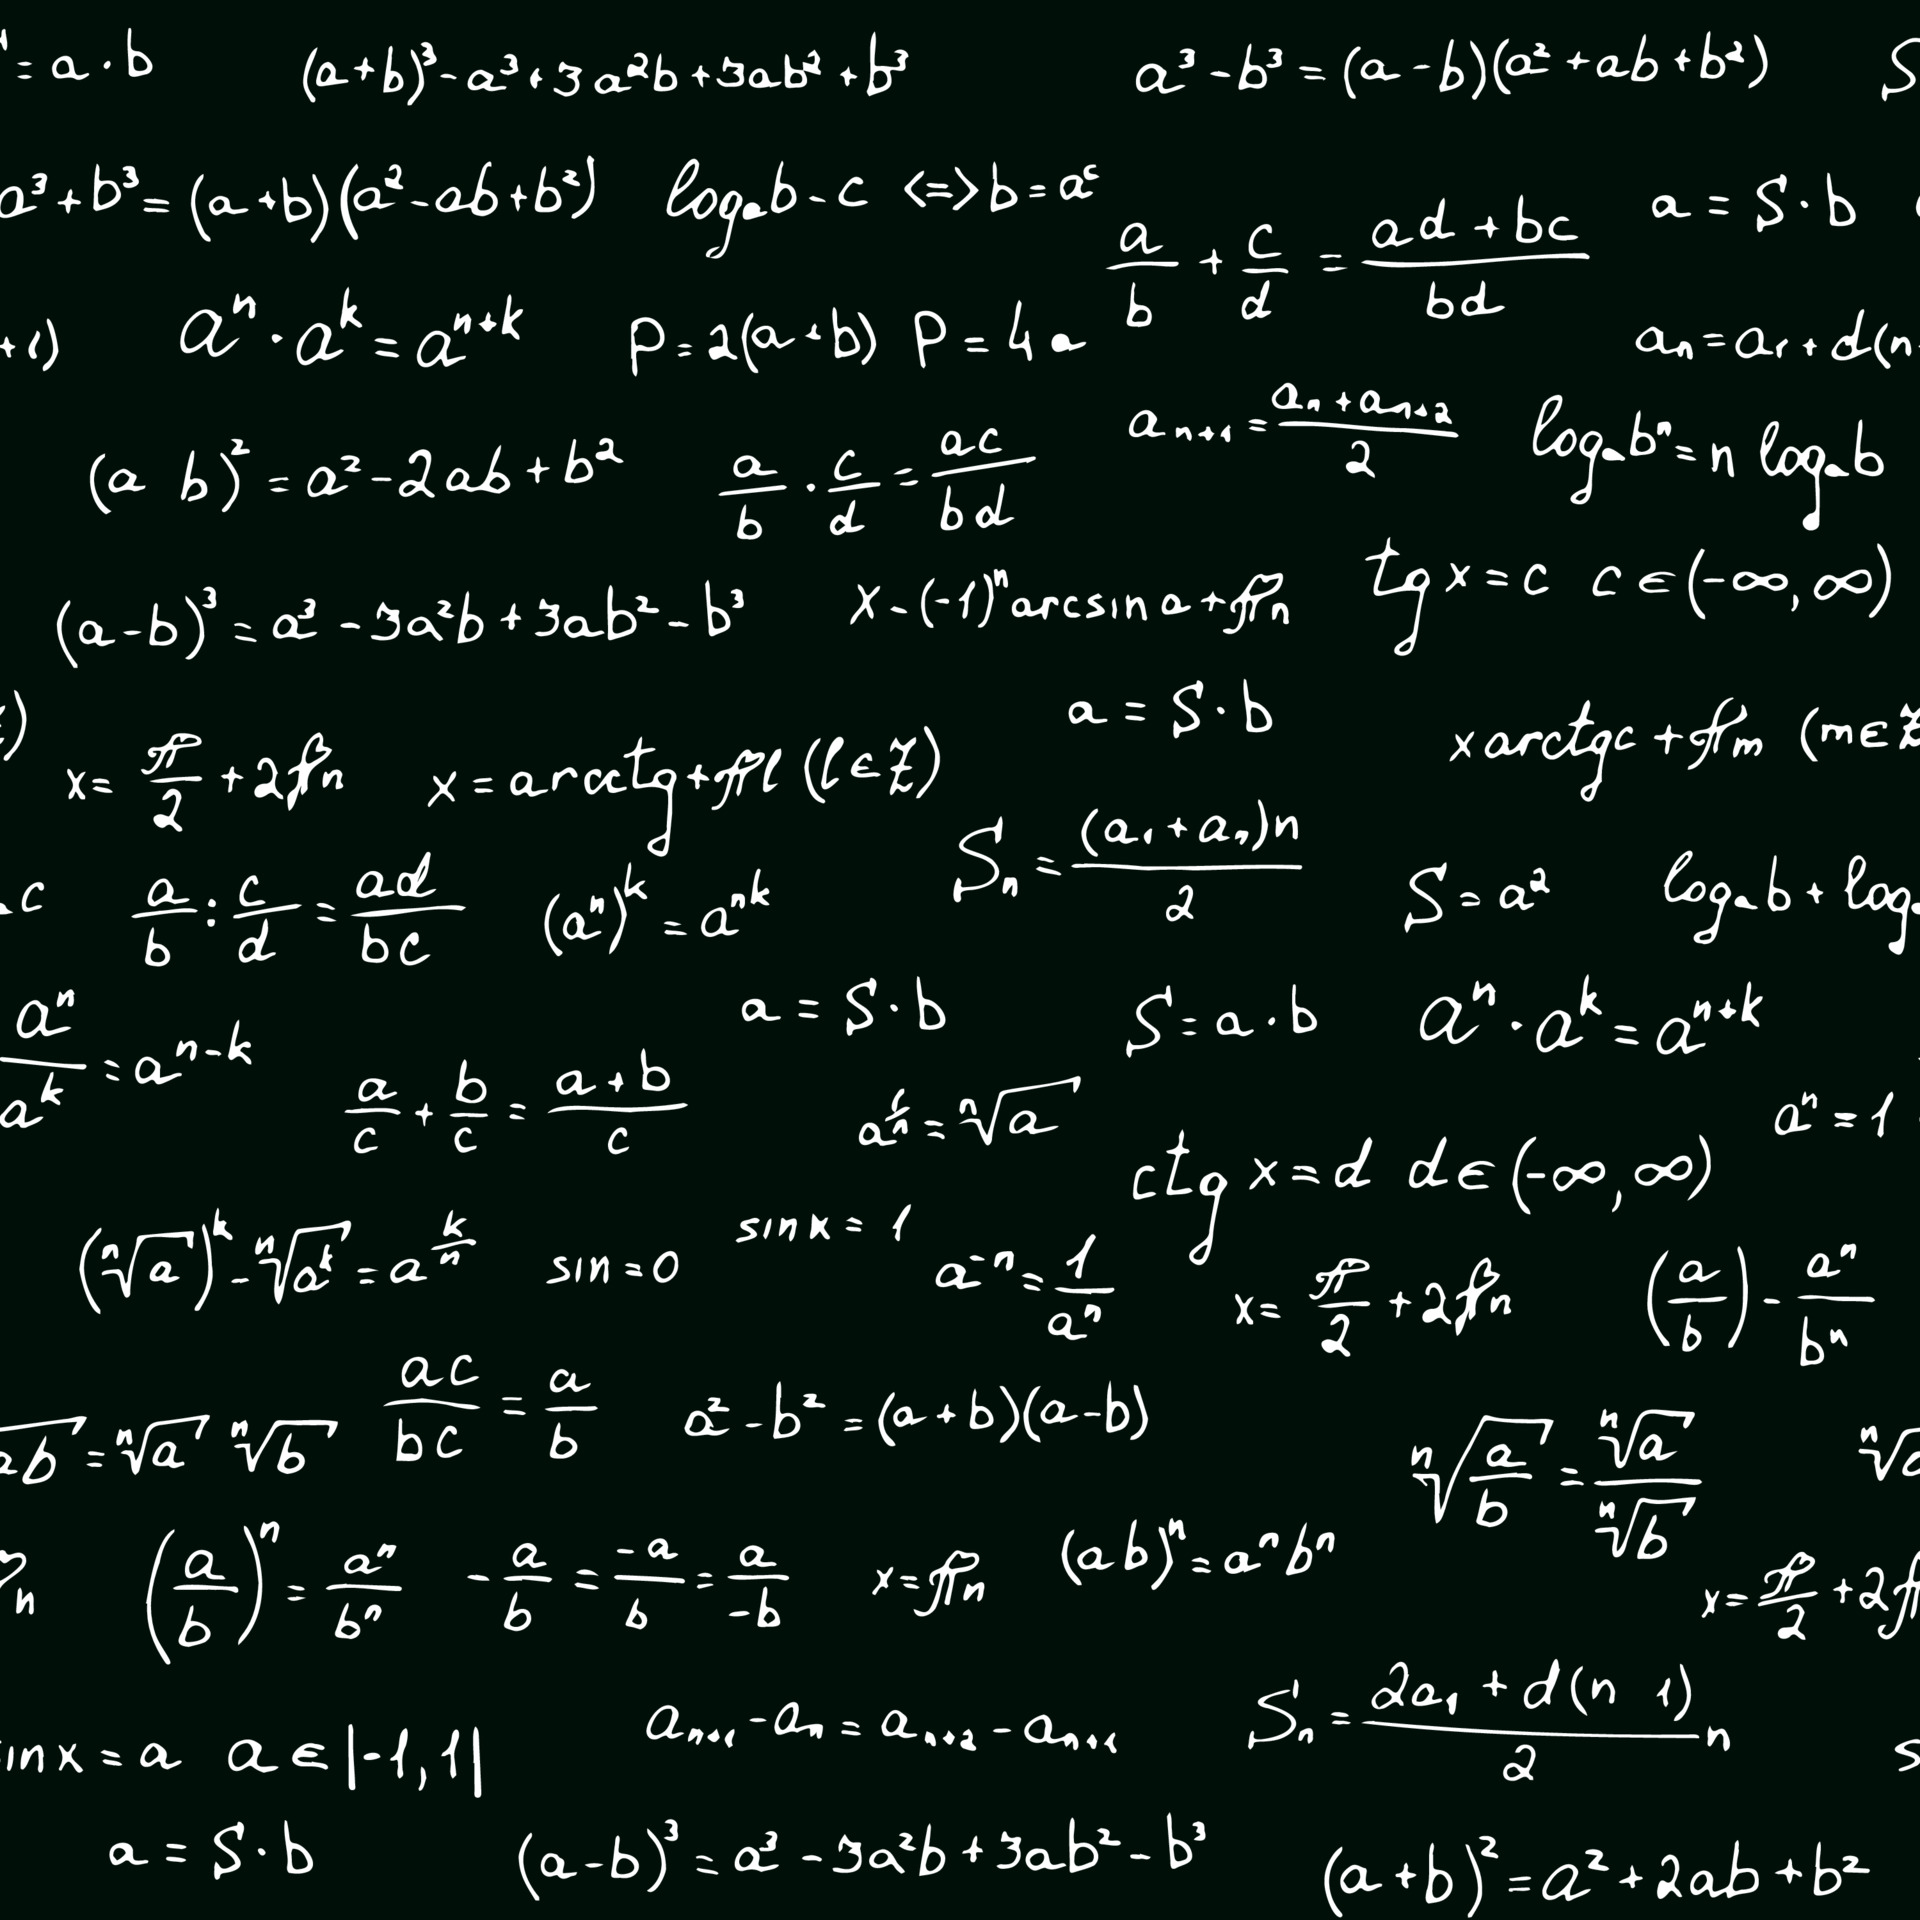 = a · b (a+b)³ - a³ + 3a²b + 3ab² + b³ a³ - b³ = (a - b)(a² + ab + b²) S
a³ + b³ = (a + b)(a² - ab + b²) logₐb - c <=> b = aᶜ a = S · b
a/b + c/d = (ad + bc)/bd
+1) aⁿ · aᵏ = aⁿ⁺ᵏ P = 2(a + b) P = 4a aₙ = a₁ + d(n
(a b)² = a² - 2ab + b² a/b · c/d = ac/bd aₙ₊₁ = (aₙ + aₙ₊₂)/2 logₐbⁿ = n logₐb
(a-b)³ = a³ - 3a²b + 3ab² - b³ x - (-1)ⁿ arcsin a + πn tg x = c c ∈ (-∞, ∞)
a = S · b
) x = π/2 + 2πn x = arcctg + πl (l ∈ Z) x arctgc + πm (m ∈ Z
c a/b : c/d = ad/bc (aⁿ)ᵏ = aⁿᵏ Sₙ = (a₁ + aₙ)n/2 S = a² logₐb + log
aⁿ/aᵏ = aⁿ⁻ᵏ a = S · b S = a · b aⁿ · aᵏ = aⁿ⁺ᵏ
a/c + b/c = (a + b)/c a^(1/n) = ⁿ√a aⁿ = 1
ctg x = d d ∈ (-∞, ∞)
(ⁿ√a)ᵏ - ⁿ√aᵏ = a^(k/n) sin = 0 sin x = 1 a⁻ⁿ = 1/aⁿ x = π/2 + 2πn (a/b) - aⁿ/bⁿ
ab = ⁿ√a ⁿ√b ac/bc = a/b a² - b² = (a + b)(a - b) ⁿ√(a/b) = ⁿ√a/ⁿ√b ⁿ√a
n (a/b)ⁿ = aⁿ/bⁿ - a/b = -a/b = a/-b x = πn (ab)ⁿ = aⁿbⁿ x = π/2 + 2π
inx = a a ∈ |-1, 1| aₙ₊₁ - aₙ = aₙ₊₂ - aₙ₊₁ Sₙ = (2a₁ + d(n 1))/2 n s
a = S · b (a-b)³ = a³ - 3a²b + 3ab² - b³ (a + b)² = a² + 2ab + b²